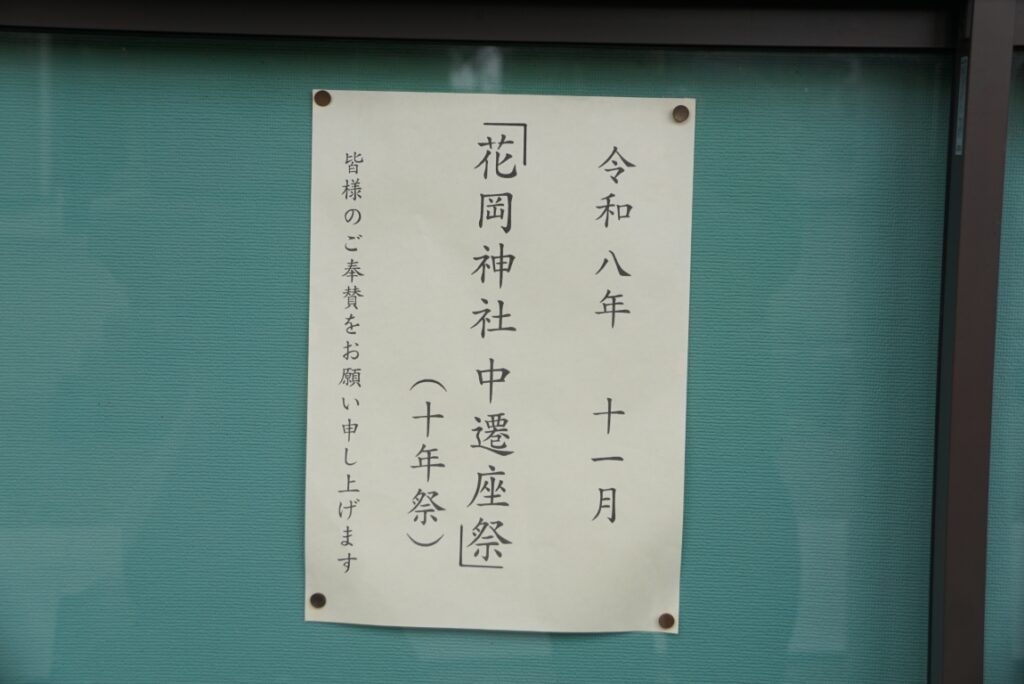 令和八年 十一月
「花岡神社中遷座祭」
(十年祭)
皆様のご奉賛をお願い申し上げます